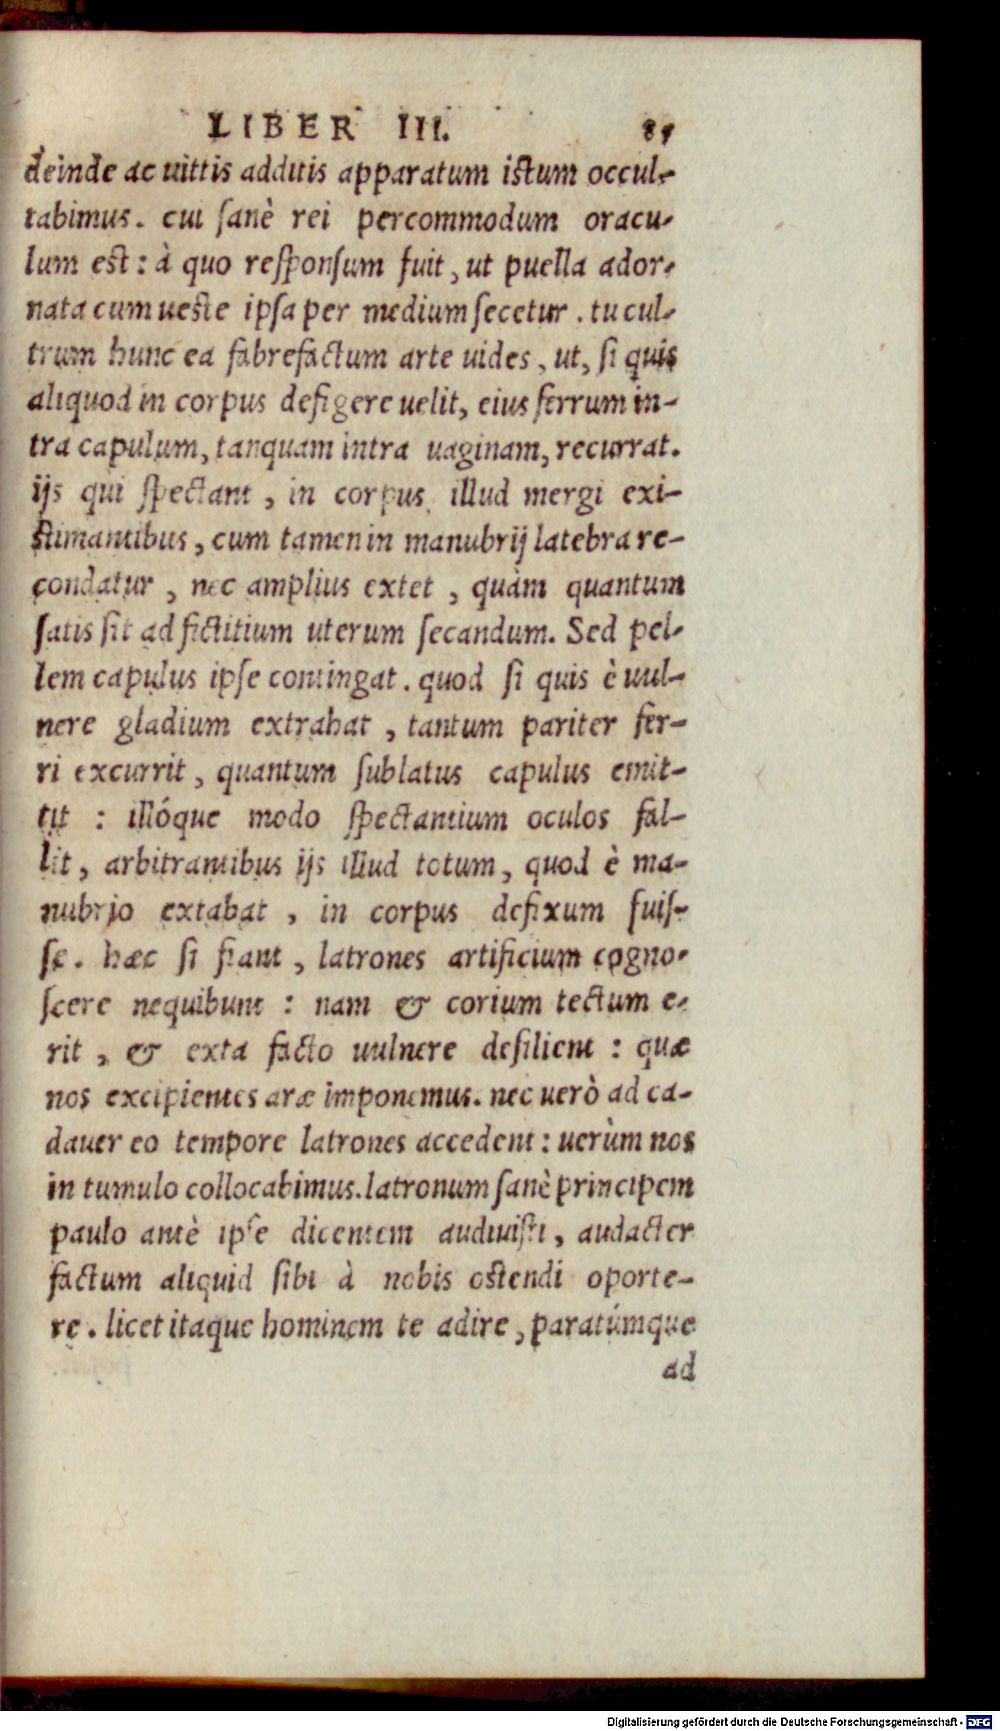 LIBER III. 85
deinde ac uittis additis apparatum istum occul-
tabimus. cui sanè rei percommodum oracu-
lum est: à quo responsum fuit, ut puella ador-
nata cum ueste ipsa per medium secetur. tu cul-
trum hunc ea fabrefactum arte uides, ut, si quis
aliquod in corpus defigere uelit, eius ferrum in-
tra capulum, tanquam intra uaginam, recurrat.
ijs qui spectant, in corpus illud mergi exi-
stimantibus, cum tamen in manubrij latebra re-
condatur, nec amplius extet, quàm quantum
satis sit ad fictitium uterum secandum. Sed pel-
lem capulus ipse contingat. quod si quis è uul-
nere gladium extrahat, tantum pariter fer-
ri excurrit, quantum sublatus capulus emit-
tit: illóque modo spectantium oculos fal-
lit, arbitrantibus ijs illud totum, quod è ma-
nubrio extabat, in corpus defixum fuis-
se. hæc si fiant, latrones artificium cogno-
scere nequibunt: nam & corium tectum e-
rit, & exta facto uulnere desilient: quæ
nos excipientes aræ imponemus. nec uerò ad ca-
dauer eo tempore latrones accedent: uerùm nos
in tumulo collocabimus. latronum sanè principem
paulo antè ipse dicentem audiuisti, audacter
factum aliquid sibi à nobis ostendi oporte-
re. licet itaque hominem te adire, paratúmque
ad
Digitalisierung gefördert durch die Deutsche Forschungsgemeinschaft - DFG